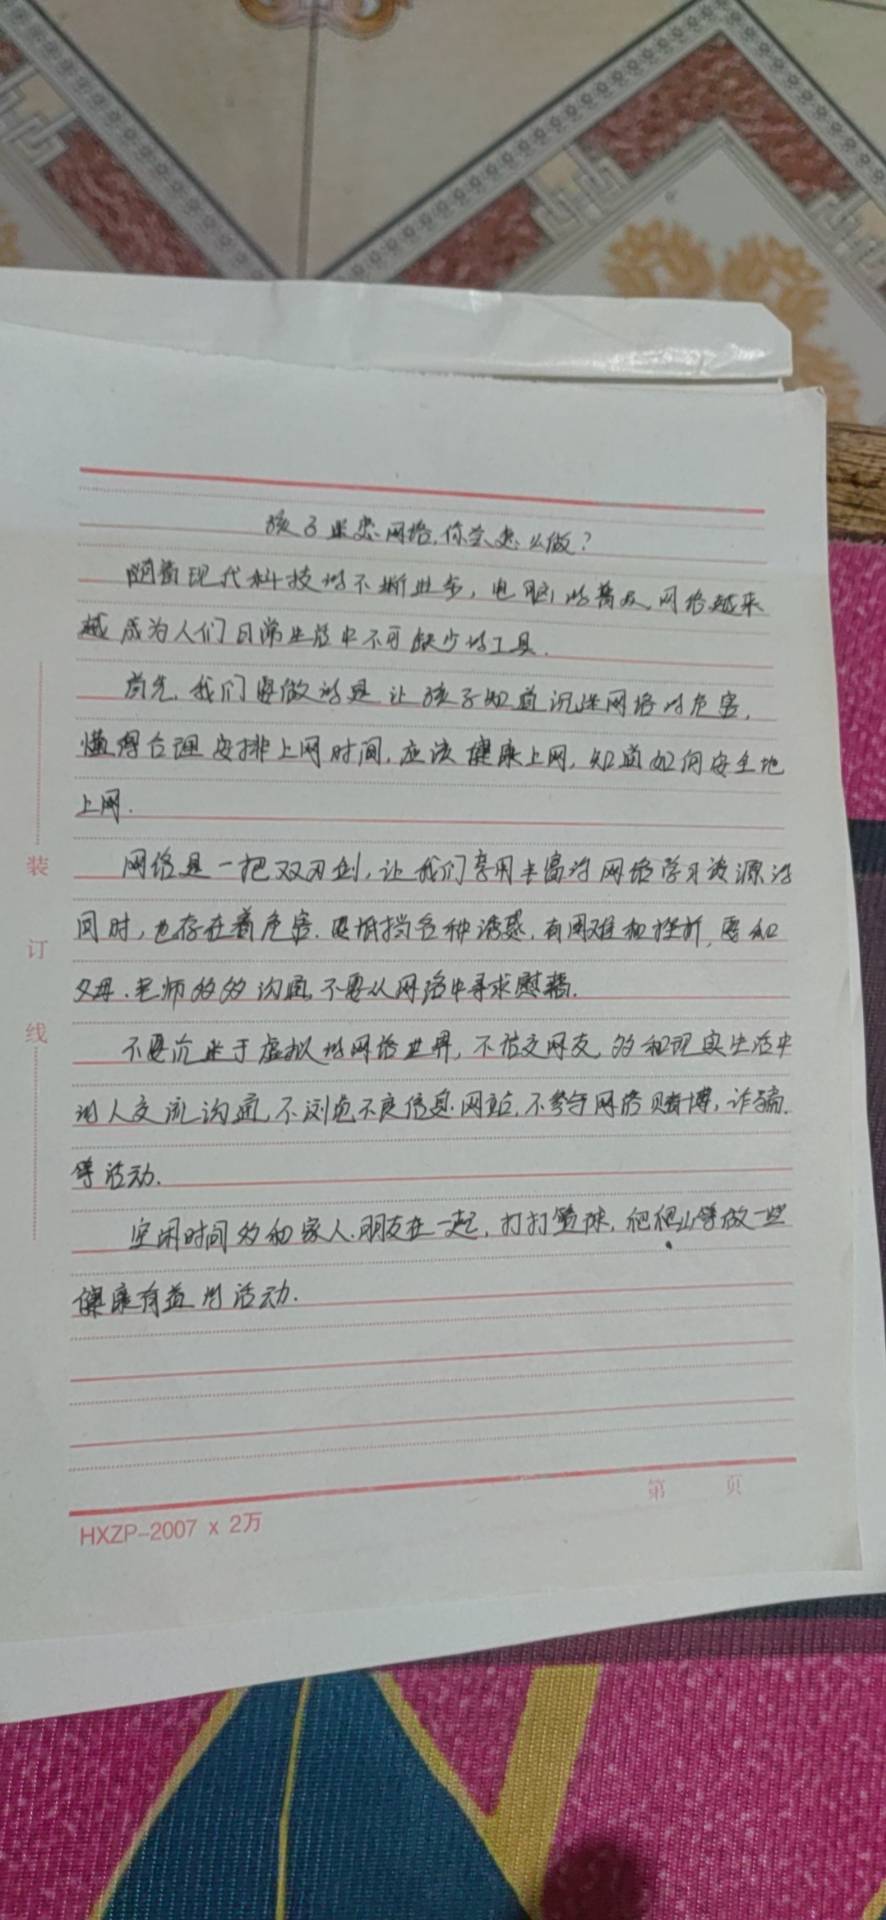 孩子迷恋网络,你会怎么做?
随着现代科技的不断进步,电脑的普及,网络越来
越成为人们日常生活中不可缺少的工具.
首先,我们要做的是让孩子知道沉迷网络的危害,
懂得合理安排上网时间,应该健康上网,知道如何安全地
上网.
网络是一把双刃剑,让我们享用丰富的网络学习资源的
同时,也存在着危害.要抵挡各种诱惑,有困难和挫折,要和
父母、老师多多沟通,不要从网络中寻求慰藉.
不要沉迷于虚拟的网络世界,不结交网友,多和现实生活中
的人交流沟通,不浏览不良信息网站,不参与网络赌博,诈骗,
等活动.
空闲时间多和家人、朋友在一起,打打篮球,爬爬山等做一些
健康有益的活动.
装
订
线
第 页
HXZP-2007 x 2万